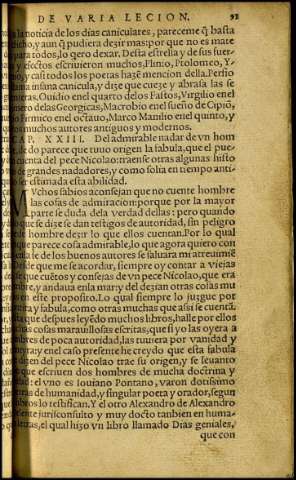 DE VARIA LECION. 92
a la noticia de los dias caniculares, pareceme q̃ basta
dicho, y aun q̃ pudiera dezir mas: por que no es mate
para todos, lo q̃ero dexar. Desta estrella y de sus fuer
y efectos escriuieron muchos, Plinio, Ptolomeo, Y-
no, y casi todos los poetas hazẽ mencion della. Persio
ama insana canicula, y dize que cueze y abrasa las se
enteras. Ouidio enel quarto delos Fastos, Virgilio enel
ero delas Georgicas, Macrobio enel sueño de Cipiõ,
o Firmico enel octauo, Marco Manilio enel quinto, y
os muchos autores antiguos y modernos.
CAP. XXIII. Del admirable nadar de vn hom
de do parece que tuuo origen la fabula, que el pue
cuenta del pece Nicolao: traense otras algunas histo
de grandes nadadores, y como solia en tiempo anti-
o ser estimada esta abilidad.
MVchos sabios aconsejan que no cuente hombre
las cosas de admiracion: porque por la mayor
parte se duda dela verdad dellas: pero quando
que se dize se dan testigos de autoridad, sin peligro
el hombre dezir lo que ellos cuentan. Por lo qual
que parece cosa admirable, lo que agora quiero con
la fe de los buenos autores se saluara mi atreuimiẽ
Desde que me se acordar, siempre oy contar a viejas
se que cuẽtos y consejas de vn pece Nicolao, que era
bre, y andaua enla mar: y del dezian otras cosas mu
en este proposito. Lo qual siempre lo juzgue por
ira y fabula, como otras muchas que assi se cuentã.
ta que despues leyẽdo muchos libros, halle por ellos
chas cosas marauillosas escritas, que si yo las oyera a
bres de poca autoridad, las tuuiera por vanidad y
tira: y enel caso presente he creydo que esta fabula
dizen del pece Nicolao trae su origen, y se leuanto
que escriuen dos hombres de mucha doctrina y
dad: el vno es Iouiano Pontano, varon dotissimo
etras de humanidad, y singular poeta y orador, segun
libros lo testifican. Y el otro Alexandro de Alexandro
ente jurisconsulto y muy docto tanbien en huma-
letras, el qual hizo vn libro llamado Dias geniales,
que con